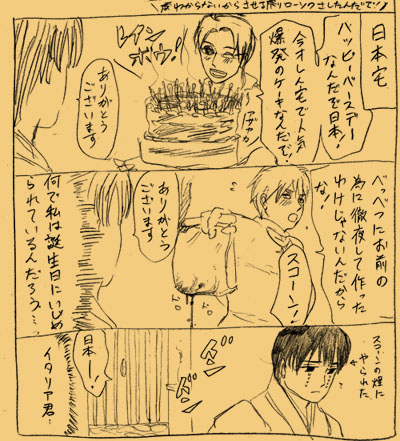 歳わからないからさせる限りローソクさしたんだで!
日本宅
ハッピーバースデー
なんだで日本!
今オレん宅で人気
爆発のケーキなんだで!
レイン
ボウ!
ありがとう
ございます
べっべつにお前の
為に徹夜して作った
わけじゃないんだから
な!
スコーン!
ありがとう
ございます
何で私は誕生日にいじめ
られているんだろう…
スコーンの煙に
やられた
日本ー!
イタリア君…